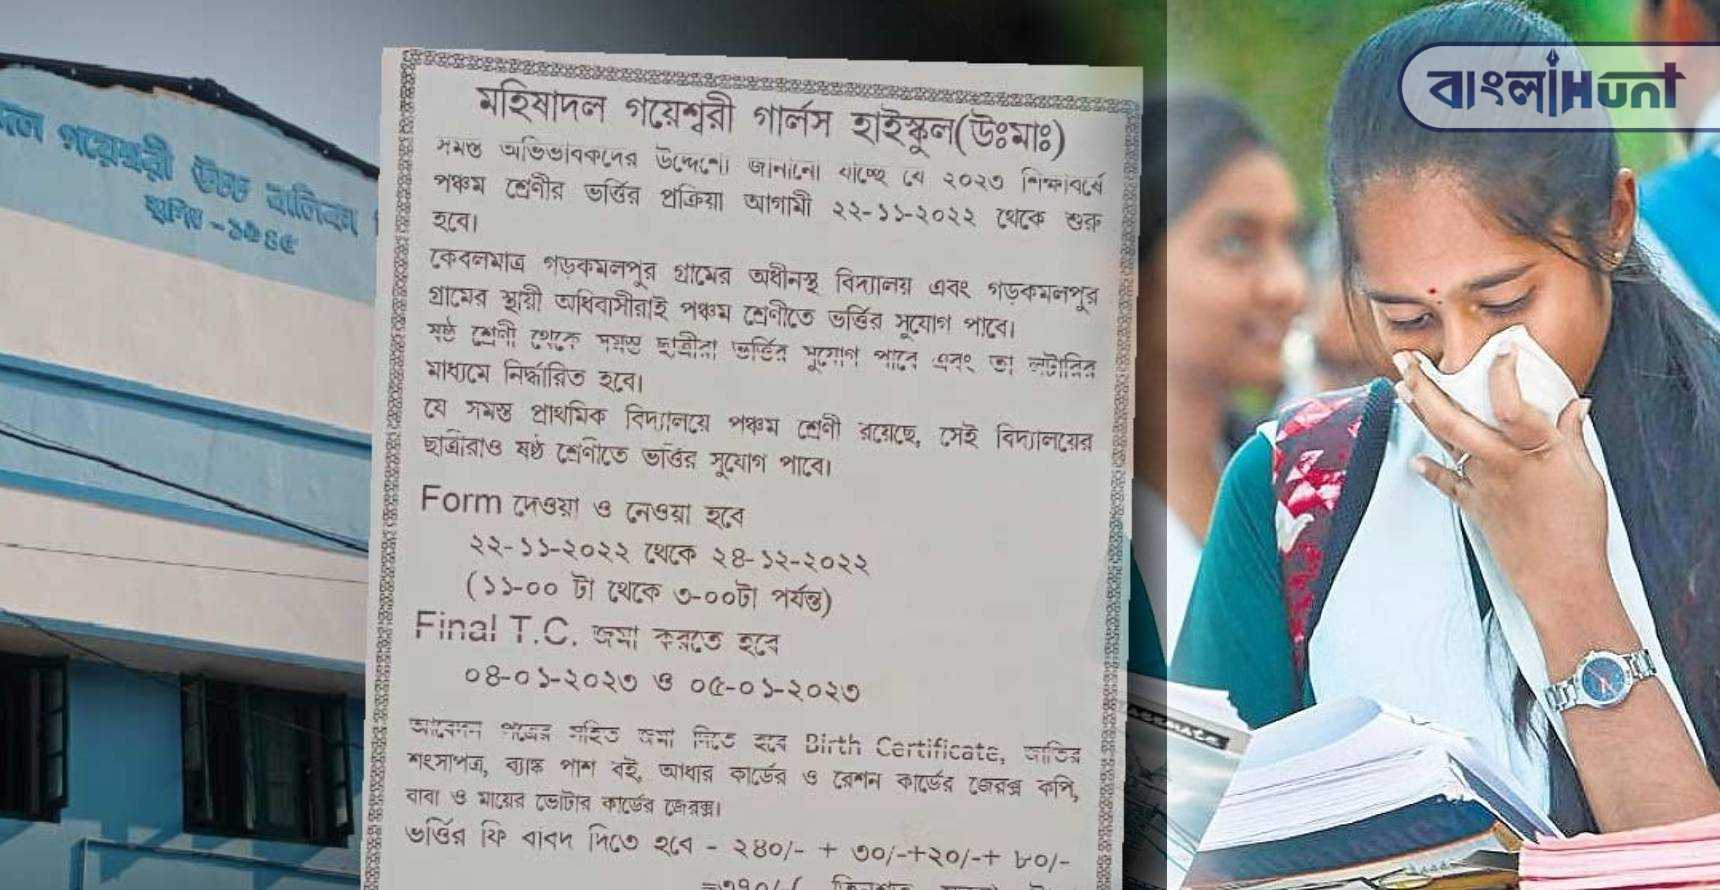 বাংলাHunt
গয়েশ্বরী উচ্চ বালিকা
স্থাপিত -
মহিষাদল গয়েশ্বরী গার্লস হাইস্কুল(উঃমাঃ)
সমস্ত অভিভাবকদের উদ্দেশ্যে জানানো যাচ্ছে যে ২০২৩ শিক্ষাবর্ষে
পঞ্চম শ্রেণীর ভর্ত্তির প্রক্রিয়া আগামী ২২-১১-২০২২ থেকে শুরু
হবে।
কেবলমাত্র গড়কমলপুর গ্রামের অধীনস্থ বিদ্যালয় এবং গড়কমলপুর
গ্রামের স্থায়ী অধিবাসীরাই পঞ্চম শ্রেণীতে ভর্ত্তির সুযোগ পাবে।
ষষ্ঠ শ্রেণী থেকে সমস্ত ছাত্রীরা ভর্ত্তির সুযোগ পাবে এবং তা লটারির
মাধ্যমে নির্দ্ধারিত হবে।
যে সমস্ত প্রাথমিক বিদ্যালয়ে পঞ্চম শ্রেণী রয়েছে, সেই বিদ্যালয়ের
ছাত্রীরাও ষষ্ঠ শ্রেণীতে ভর্ত্তির সুযোগ পাবে।
Form দেওয়া ও নেওয়া হবে
২২-১১-২০২২ থেকে ২৪-১২-২০২২
(১১-০০ টা থেকে ৩-০০টা পর্যন্ত)
Final T.C. জমা করতে হবে
০৪-০১-২০২৩ ও ০৫-০১-২০২৩
আবেদন পত্রের সহিত জমা দিতে হবে Birth Certificate, জাতির
শংসাপত্র, ব্যাঙ্ক পাশ বই, আধার কার্ডের ও রেশন কার্ডের জেরক্স কপি,
বাবা ও মায়ের ভোটার কার্ডের জেরক্স।
ভর্ত্তির ফি বাবদ দিতে হবে - ২৪০/- + ৩০/-+২০/-+ ৮০/-